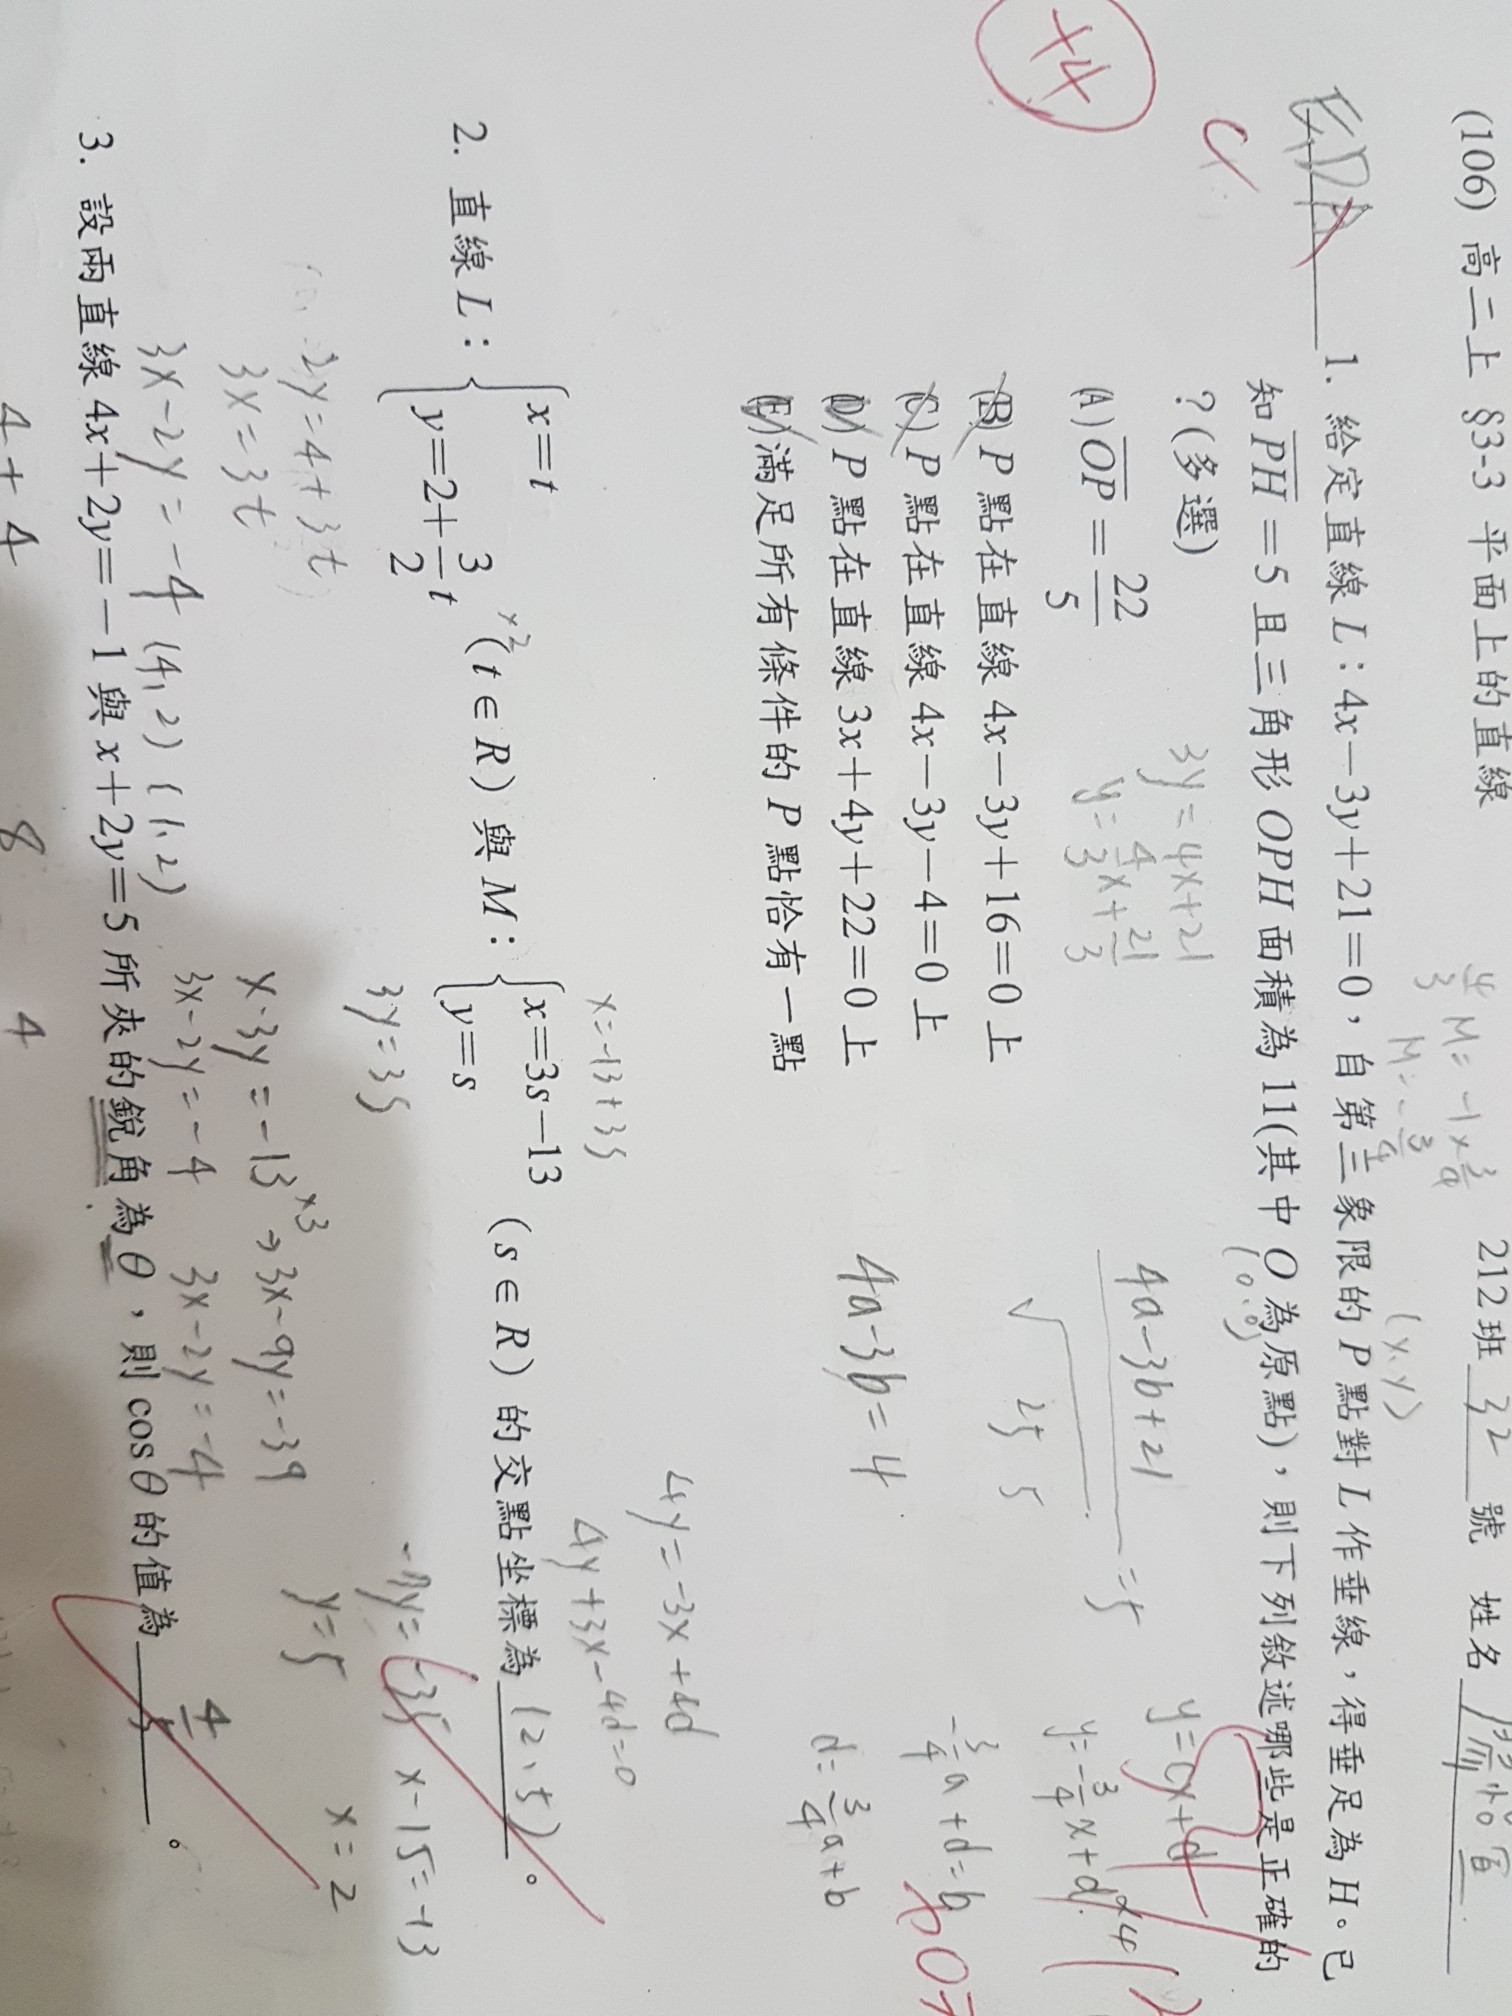 (106) 高二上 §3-3 平面上的直線 212班 32 號 姓名
4/3 M = -1 × 3/4
M = -3/4
(x, y)
1. 給定直線 L：4x－3y＋21＝0，自第三象限的 P 點對 L 作垂線，得垂足為 H。已
知 PH＝5 且三角形 OPH 面積為 11(其中 O 為原點)，則下列敘述哪些是正確的
(0,0)
?(多選)
3y = 4x+21
y = 4/3 x + 21/3
(A) OP＝22/5
(B) P 點在直線 4x－3y＋16＝0 上
(C) P 點在直線 4x－3y－4＝0 上
(D) P 點在直線 3x＋4y＋22＝0 上
(E) 滿足所有條件的 P 點恰有一點
4a-3b+21
= 5
√
25 5
4a-3b = 4
y = cx+d
y = -3/4 x + d
-3/4 a + d = b
d = 3/4 a + b
4y = -3x + 4d
4y + 3x - 4d = 0
+4
x = -13 + 3s
2. 直線 L：{x＝t, y＝2＋3/2 t (t∈R) 與 M：{x＝3s－13, y＝s (s∈R) 的交點坐標為 (2, 5)。
×2
2y = 4 + 3t
3x = 3t
3x - 2y = -4
3y = 3s
x - 3y = -13 ×3 → 3x - 9y = -39
3x - 2y = -4 3x - 2y = -4
y = 5
x - 15 = -13
x = 2
(4, 2) (1, 2)
3. 設兩直線 4x＋2y＝－1 與 x＋2y＝5 所夾的銳角為 θ，則 cos θ 的值為 4/5。
4 + 4 8 4